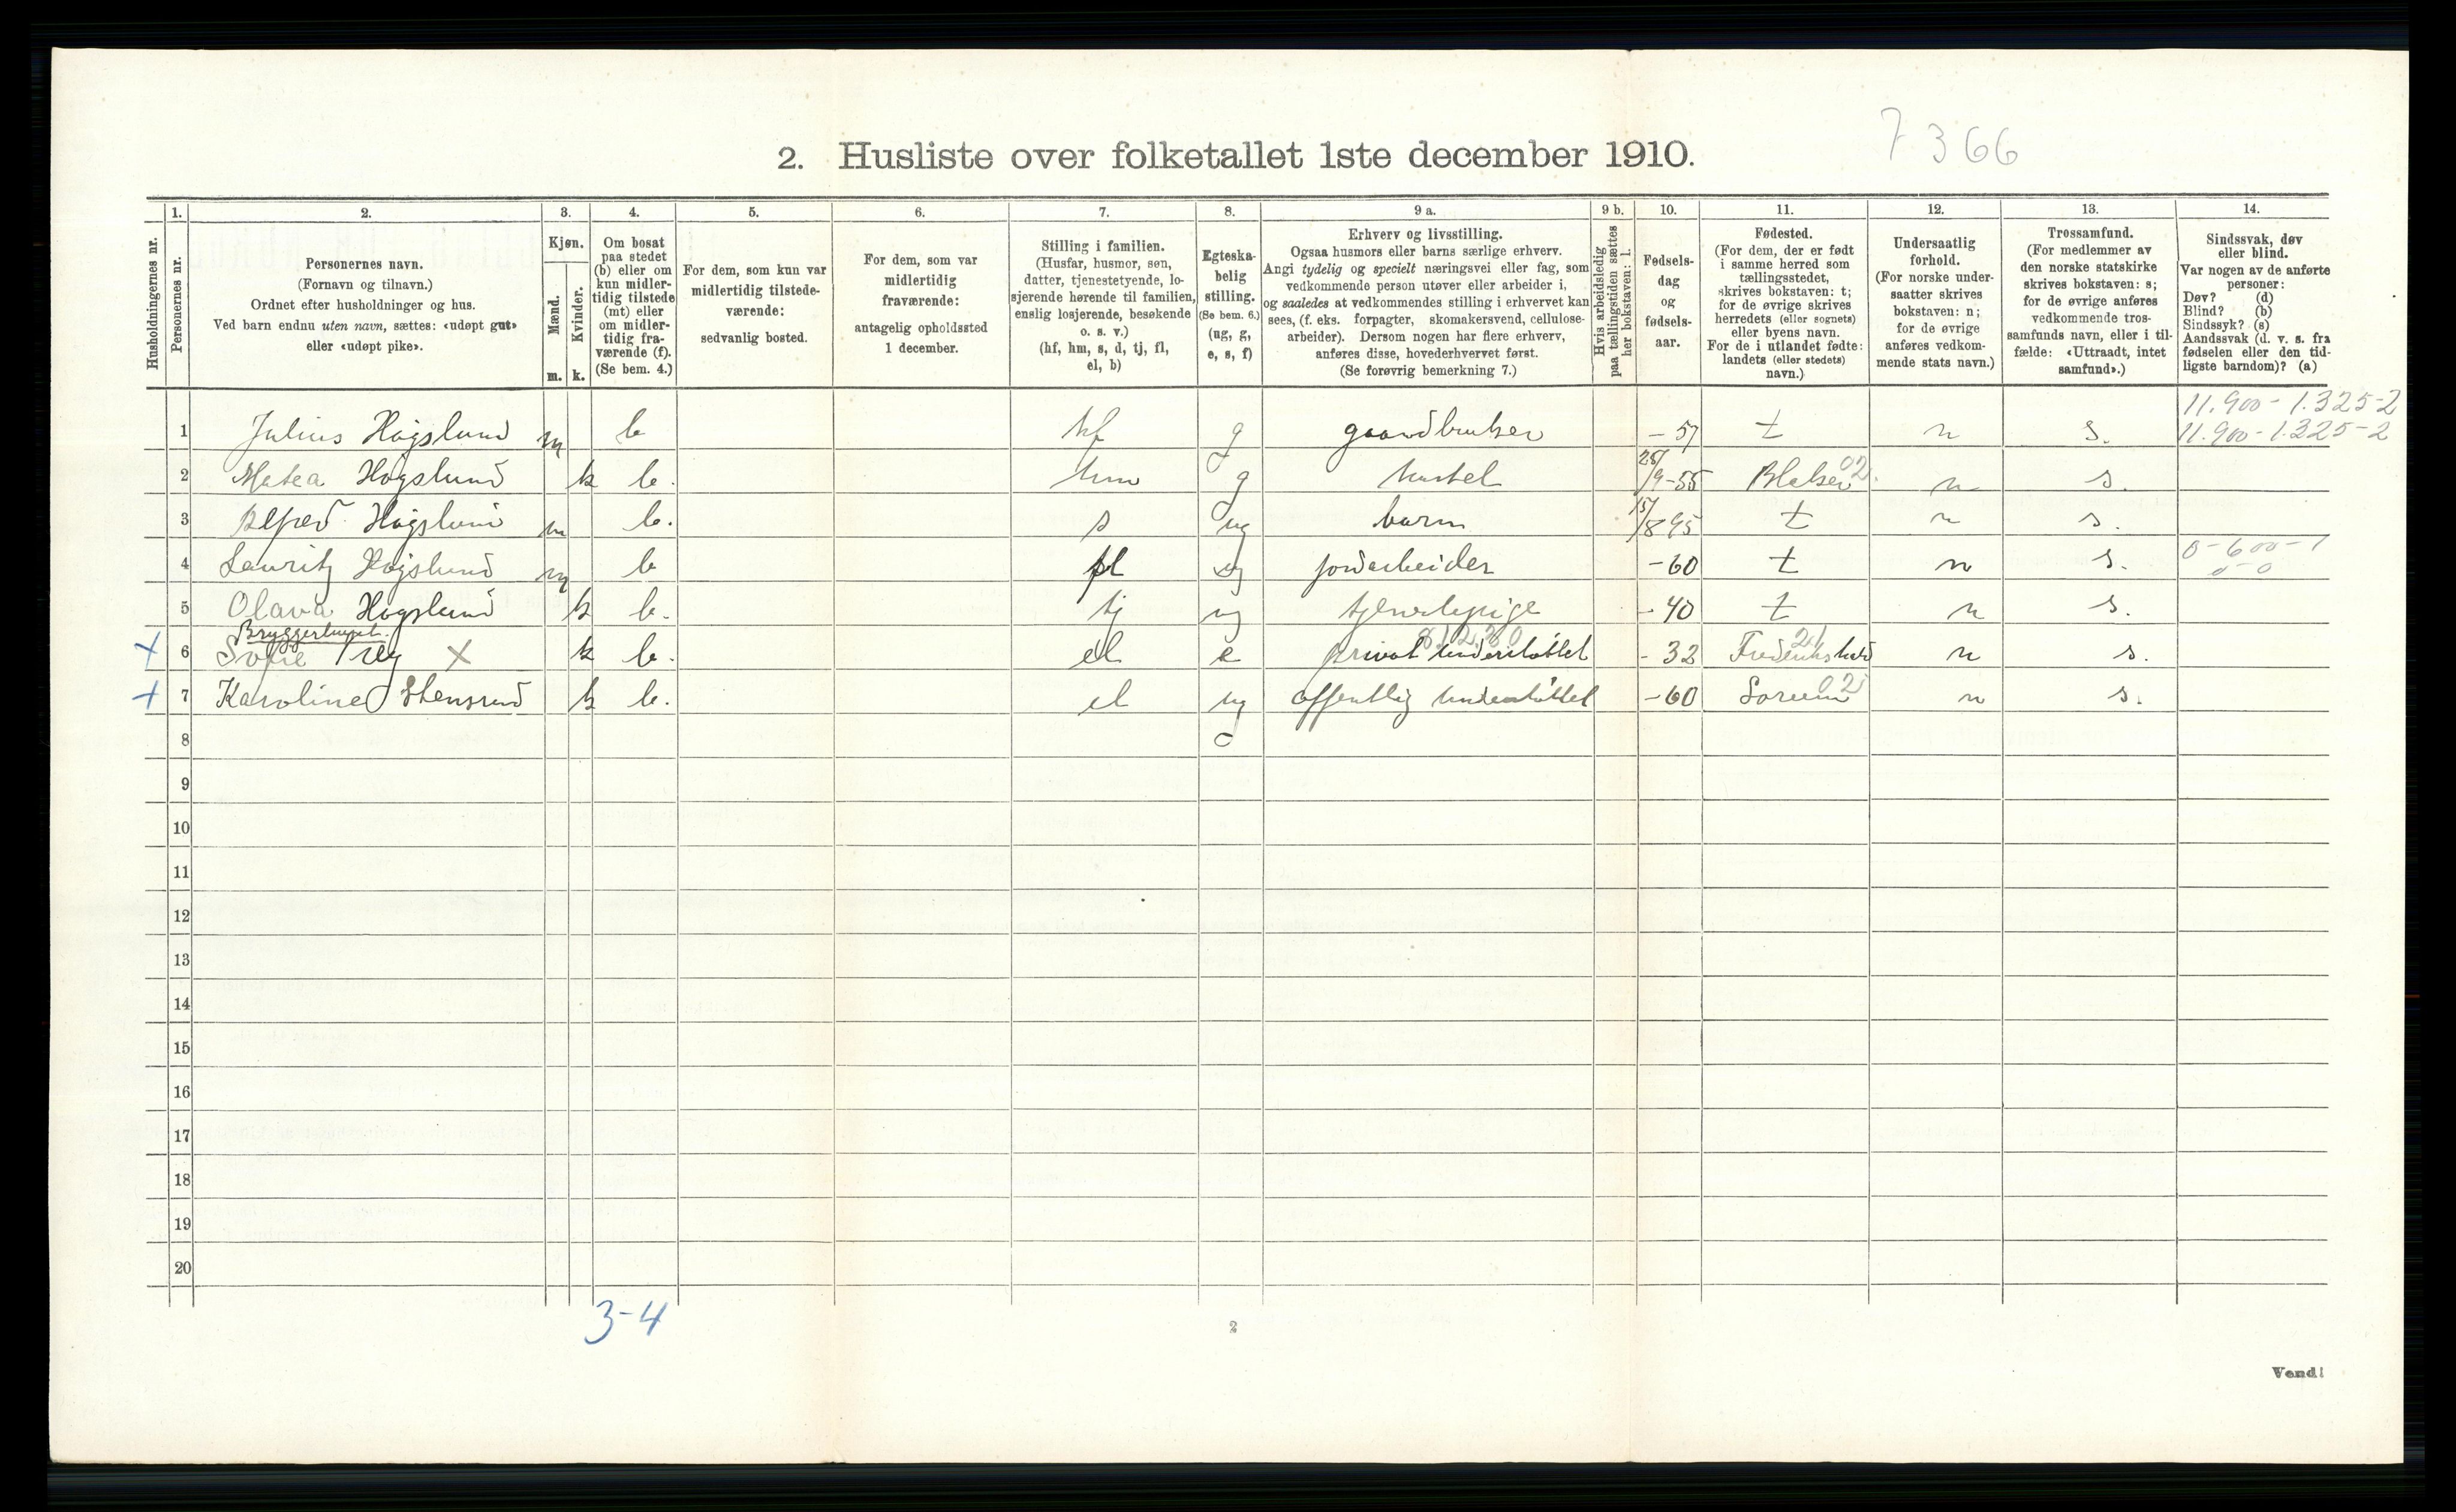 7366
2. Husliste over folketallet 1ste december 1910.
1. 2. 3. 4. 5. 6. 7. 8. 9 a. 9 b. 10. 11. 12. 13. 14.
Husholdningernes nr.
Personernes nr.
Personernes navn.
(Fornavn og tilnavn.)
Ordnet efter husholdninger og hus.
Ved barn endnu uten navn, sættes: «udøpt gut»
eller «udøpt pike».
Kjøn.
Mænd.
Kvinder.
m. k.
Om bosat
paa stedet
(b) eller om
kun midler-
tidig tilstede
(mt) eller
om midler-
tidig fra-
værende (f).
(Se bem. 4.)
For dem, som kun var
midlertidig tilstede-
værende:
sedvanlig bosted.
For dem, som var
midlertidig
fraværende:
antagelig opholdssted
1 december.
Stilling i familien.
(Husfar, husmor, søn,
datter, tjenestetyende, lo-
sjerende hørende til familien,
enslig losjerende, besøkende
o. s. v.)
(hf, hm, s, d, tj, fl,
el, b)
Egteska-
belig
stilling.
(Se bem. 6.)
(ug, g,
e, s, f)
Erhverv og livsstilling.
Ogsaa husmors eller barns særlige erhverv.
Angi tydelig og specielt næringsvei eller fag, som
vedkommende person utøver eller arbeider i,
og saaledes at vedkommendes stilling i erhvervet kan
sees, (f. eks. forpagter, skomakersvend, cellulose-
arbeider). Dersom nogen har flere erhverv,
anføres disse, hovederhvervet først.
(Se forøvrig bemerkning 7.)
Hvis arbeidsledig
paa tællingstiden sættes
her bokstaven: l.
Fødsels-
dag
og
fødsels-
aar.
Fødested.
(For dem, der er født
i samme herred som
tællingsstedet,
skrives bokstaven: t;
for de øvrige skrives
herredets (eller sognets)
eller byens navn.
For de i utlandet fødte:
landets (eller stedets)
navn.)
Undersaatlig
forhold.
(For norske under-
saatter skrives
bokstaven: n;
for de øvrige
anføres vedkom-
mende stats navn.)
Trossamfund.
(For medlemmer av
den norske statskirke
skrives bokstaven: s;
for de øvrige anføres
vedkommende tros-
samfunds navn, eller i til-
fælde: «Uttraadt, intet
samfund».)
Sindssvak, døv
eller blind.
Var nogen av de anførte
personer:
Døv? (d)
Blind? (b)
Sindssyk? (s)
Aandssvak (d. v. s. fra
fødselen eller den tid-
ligste barndom)? (a)
11.900-1.325-2
1 Julius Høgslund m b hf g gaardbruker -57 t n s. 11.900-1.325-2
2 Matea Høgslund k b. hm g hustel 25/9-55 02. n s.
3 Alfred Høgslund m b. s ug barn 15/8 95 t n s.
4 Lauritz Høgslund m b fl ug jordarbeider -60 t n s. 0-600-1
0-0
5 Olava Høgslund k b. tj ug tjenestepige -40 t n s.
Bryggerhuset.
+ 6 Sofie × k b. el e privat understøttet -32 Frederikshald n s.
+ 7 Karoline Stensrud k b. el ug offentlig understøttet -60 Sørum 02 n s.
8
9
10
11
12
13
14
15
16
17
18
19
20
3-4
2
Vend!